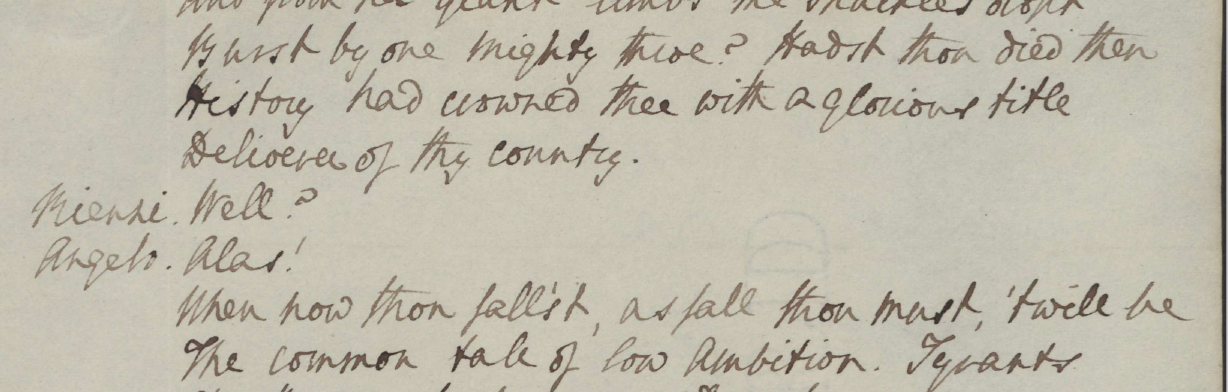 and from her giant limbs the shackles dropt
Burst by one mighty throe? Hadst thou died then
History had crowned thee with a glorious title
Deliverer of thy country.
Rienzi. Well?
Angelo. Alas!
When now thou fall'st, as fall thou must, 'twill be
The common tale of low ambition. Tyrants